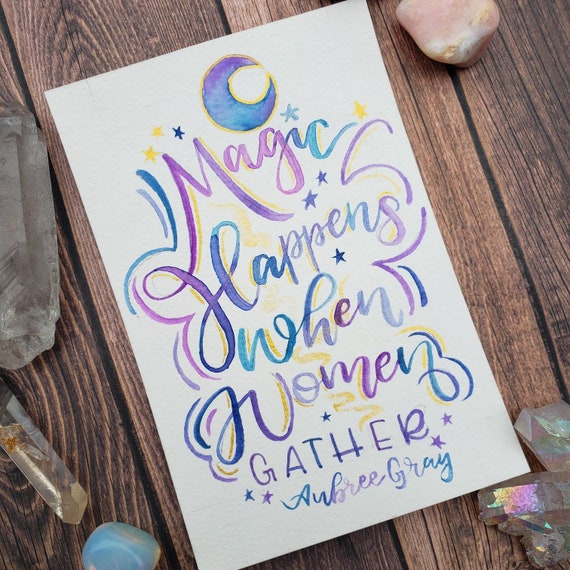 Magic
Happens
When
Women
GATHER
Aubree Gray